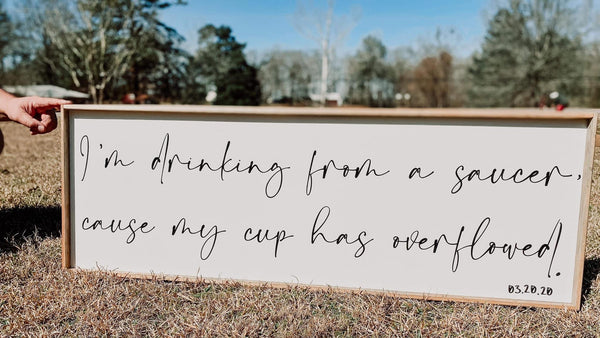 I'm drinking from a saucer,
cause my cup has overflowed!
03.20.20